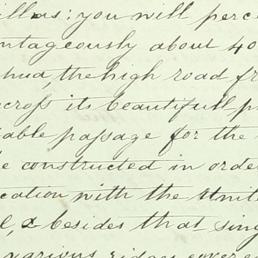 llas: you will perce
ntageously about 40
hua, the high road fr
cross its beautifull p
able passage for the
e constructed in orde
cation with the Unit
l, & besides that sing
various ridges covere